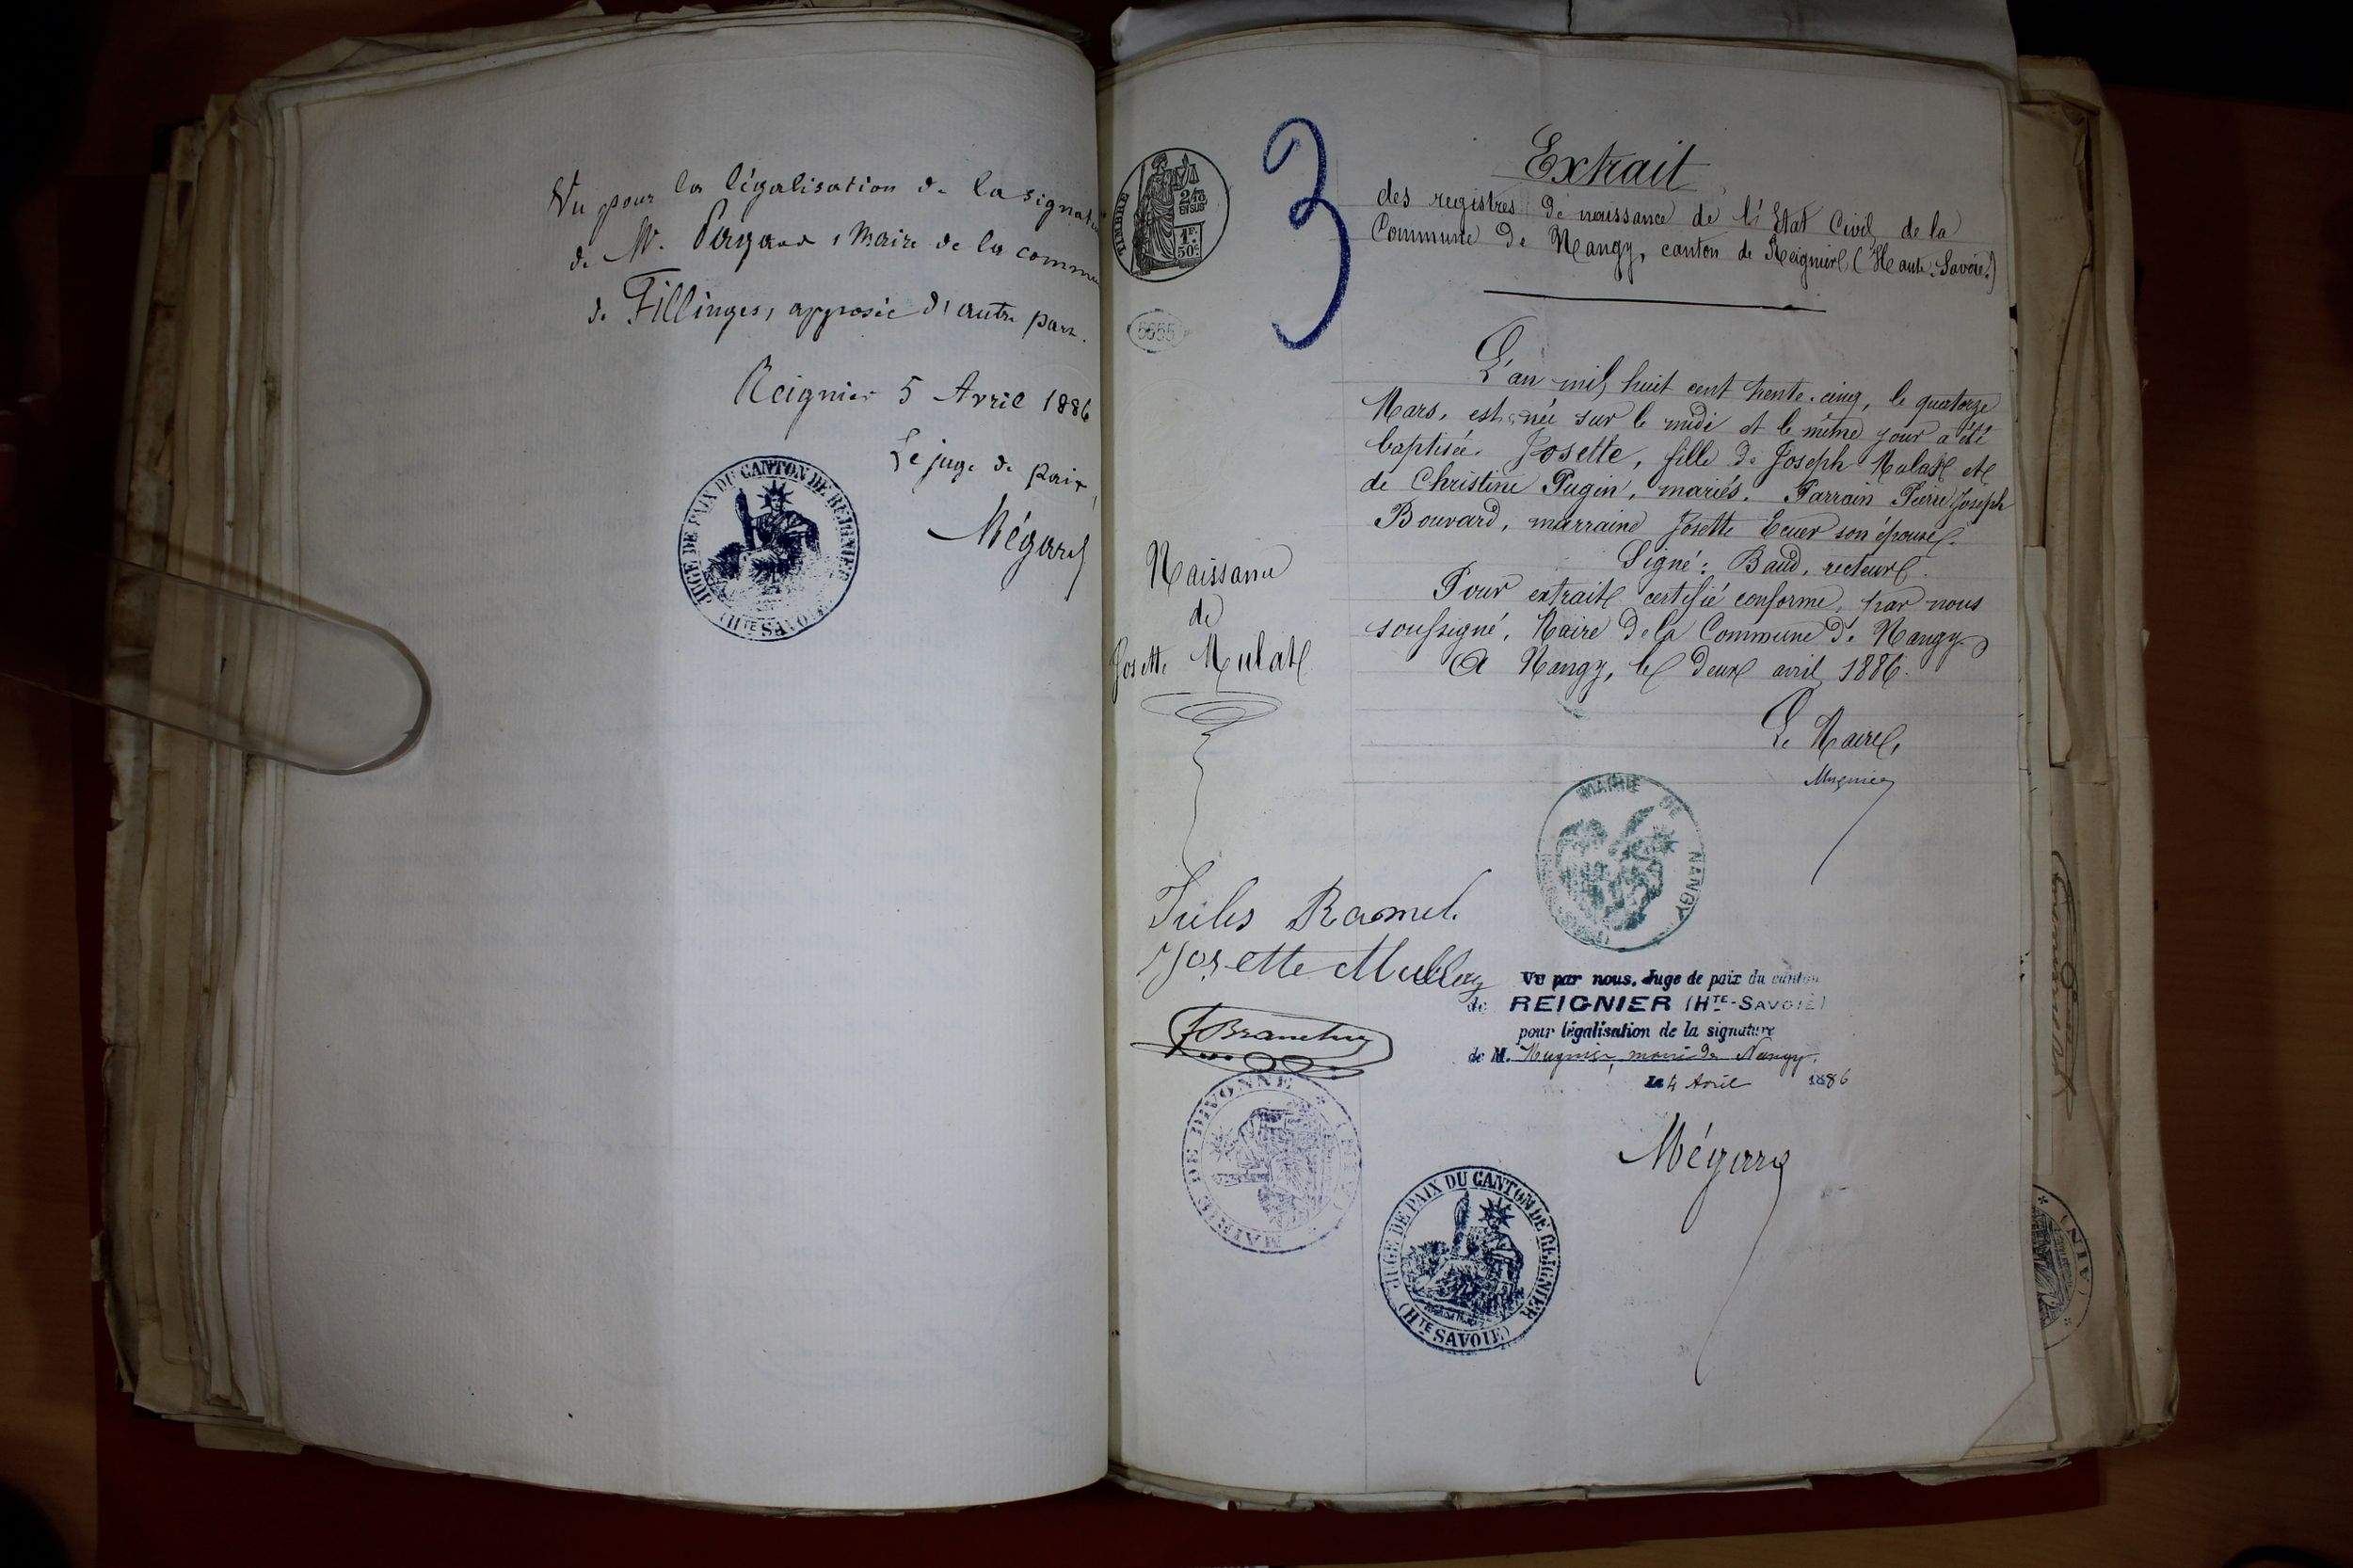 Vu pour la légalisation de la signatu
de M. Pagand, Maire de la commu
de Fillinges, apposée d'autre part.
Reignier 5 Avril 1886
Le juge de paix,
Mégard
JUGE DE PAIX DU CANTON DE REIGNIER
(HTE SAVOIE)
3
TIMBRE
2/10
EN SUS
1F.
50c.
5655
Extrait
des registres de naissance de l'Etat Civil de la
Commune de Nangy, canton de Reignier (Haute-Savoie.)
L'an mil huit cent trente-cinq, le quatorze
Mars, est née sur le midi et le même jour a été
baptisée Josette, fille de Joseph Mulat et
de Christine Pugin, mariés. Parrain Pierre Joseph
Bouvard, marraine Josette Ecuer son épouse.
Signé: Baud, recteur.
Pour extrait certifié conforme, par nous
soussigné, Maire de la Commune de Nangy
A Nangy, le deux avril 1886.
Le Maire,
Mugnier
Naissance
de
Josette Mulat
MAIRIE DE NANGY
Jules Ramel
Josette Mullay
MAIRIE DE DIVONNE
(AIN)
Vu par nous, Juge de paix du canton
de REIGNIER (HTE-SAVOIE)
pour légalisation de la signature
de M. Mugnier, maire de Nangy.
Le 4 Avril 1886
Mégard
JUGE DE PAIX DU CANTON DE REIGNIER
(HTE SAVOIE)
(AIN)